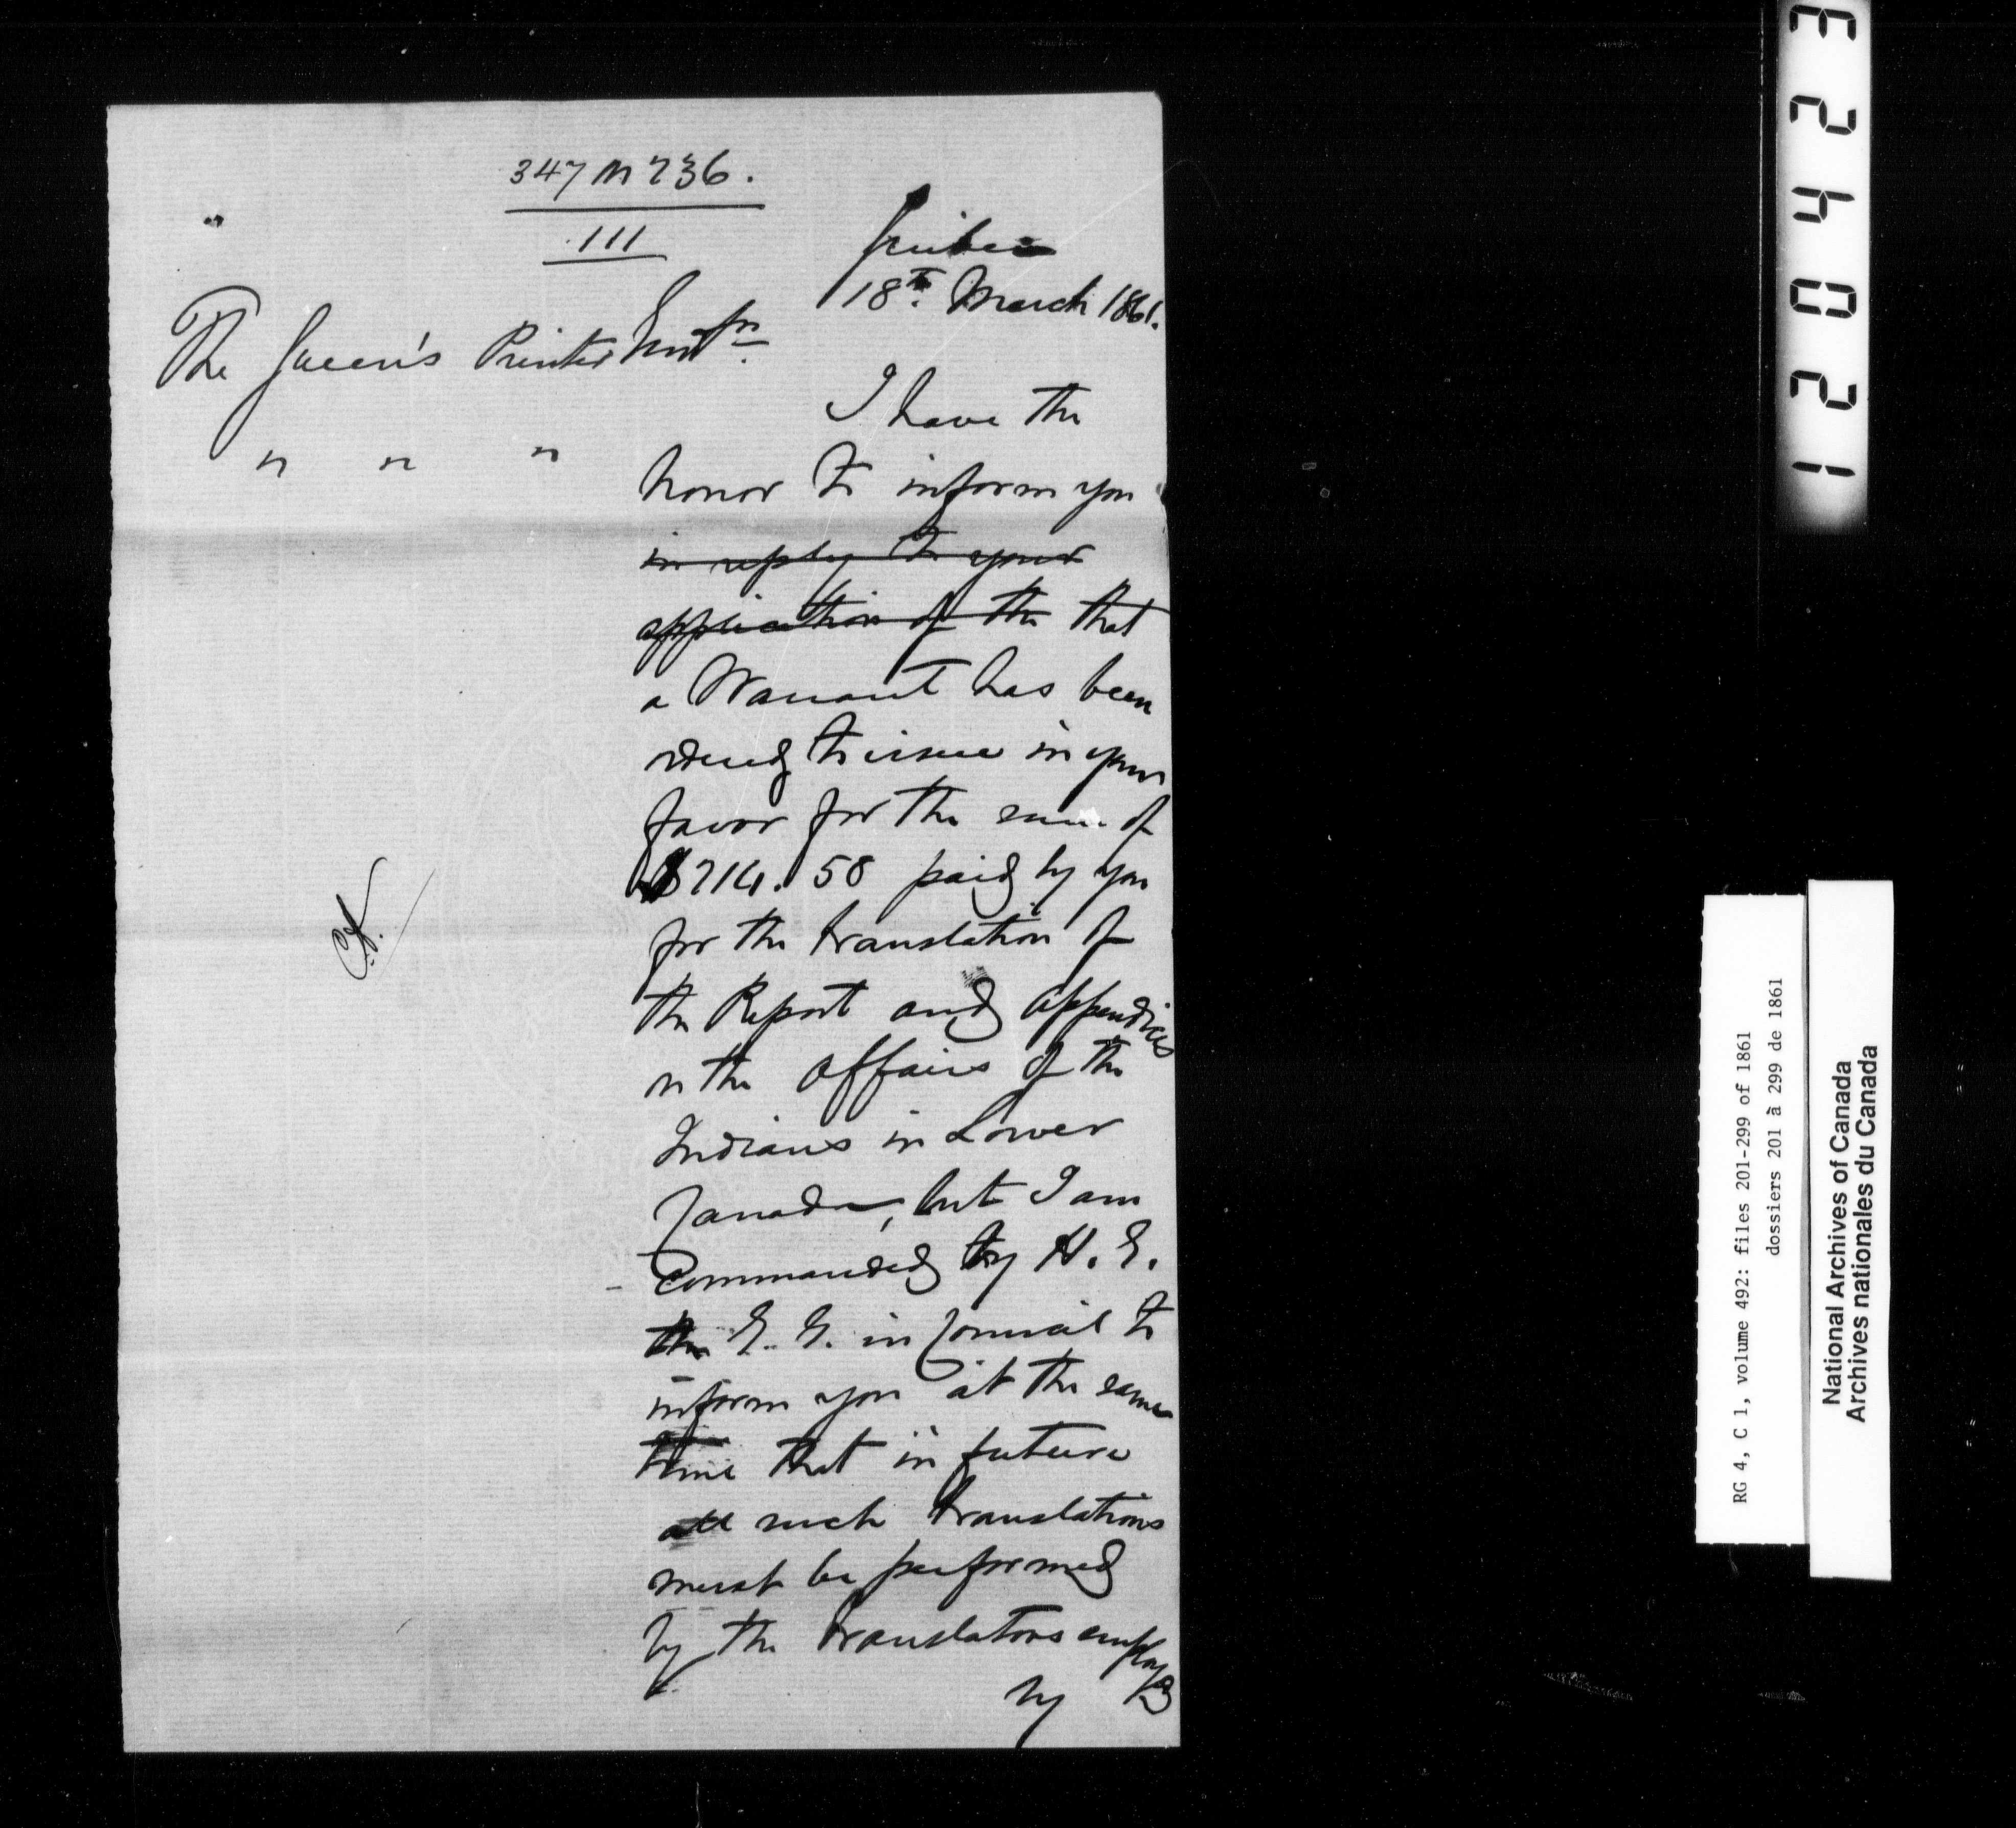 347 M 236.
111
Quebec
18th. March 1861.
The Queen's Printer
" " "
Gentn
I have the
honor to inform you
in reply to your
application of the that
a Warrant has been
ordered to issue in your
favor for the sum of
$714.58 paid by you
for the translation of
the Report and appendices
on the affairs of the
Indians in Lower
Canada, but I am
commanded by H. E.
the G. G. in Council to
inform you at the same
time that in future
all such translations
must be performed
by the translators employed
by
RG 4, C 1, volume 492: files 201-299 of 1861
dossiers 201 à 299 de 1861
National Archives of Canada
Archives nationales du Canada